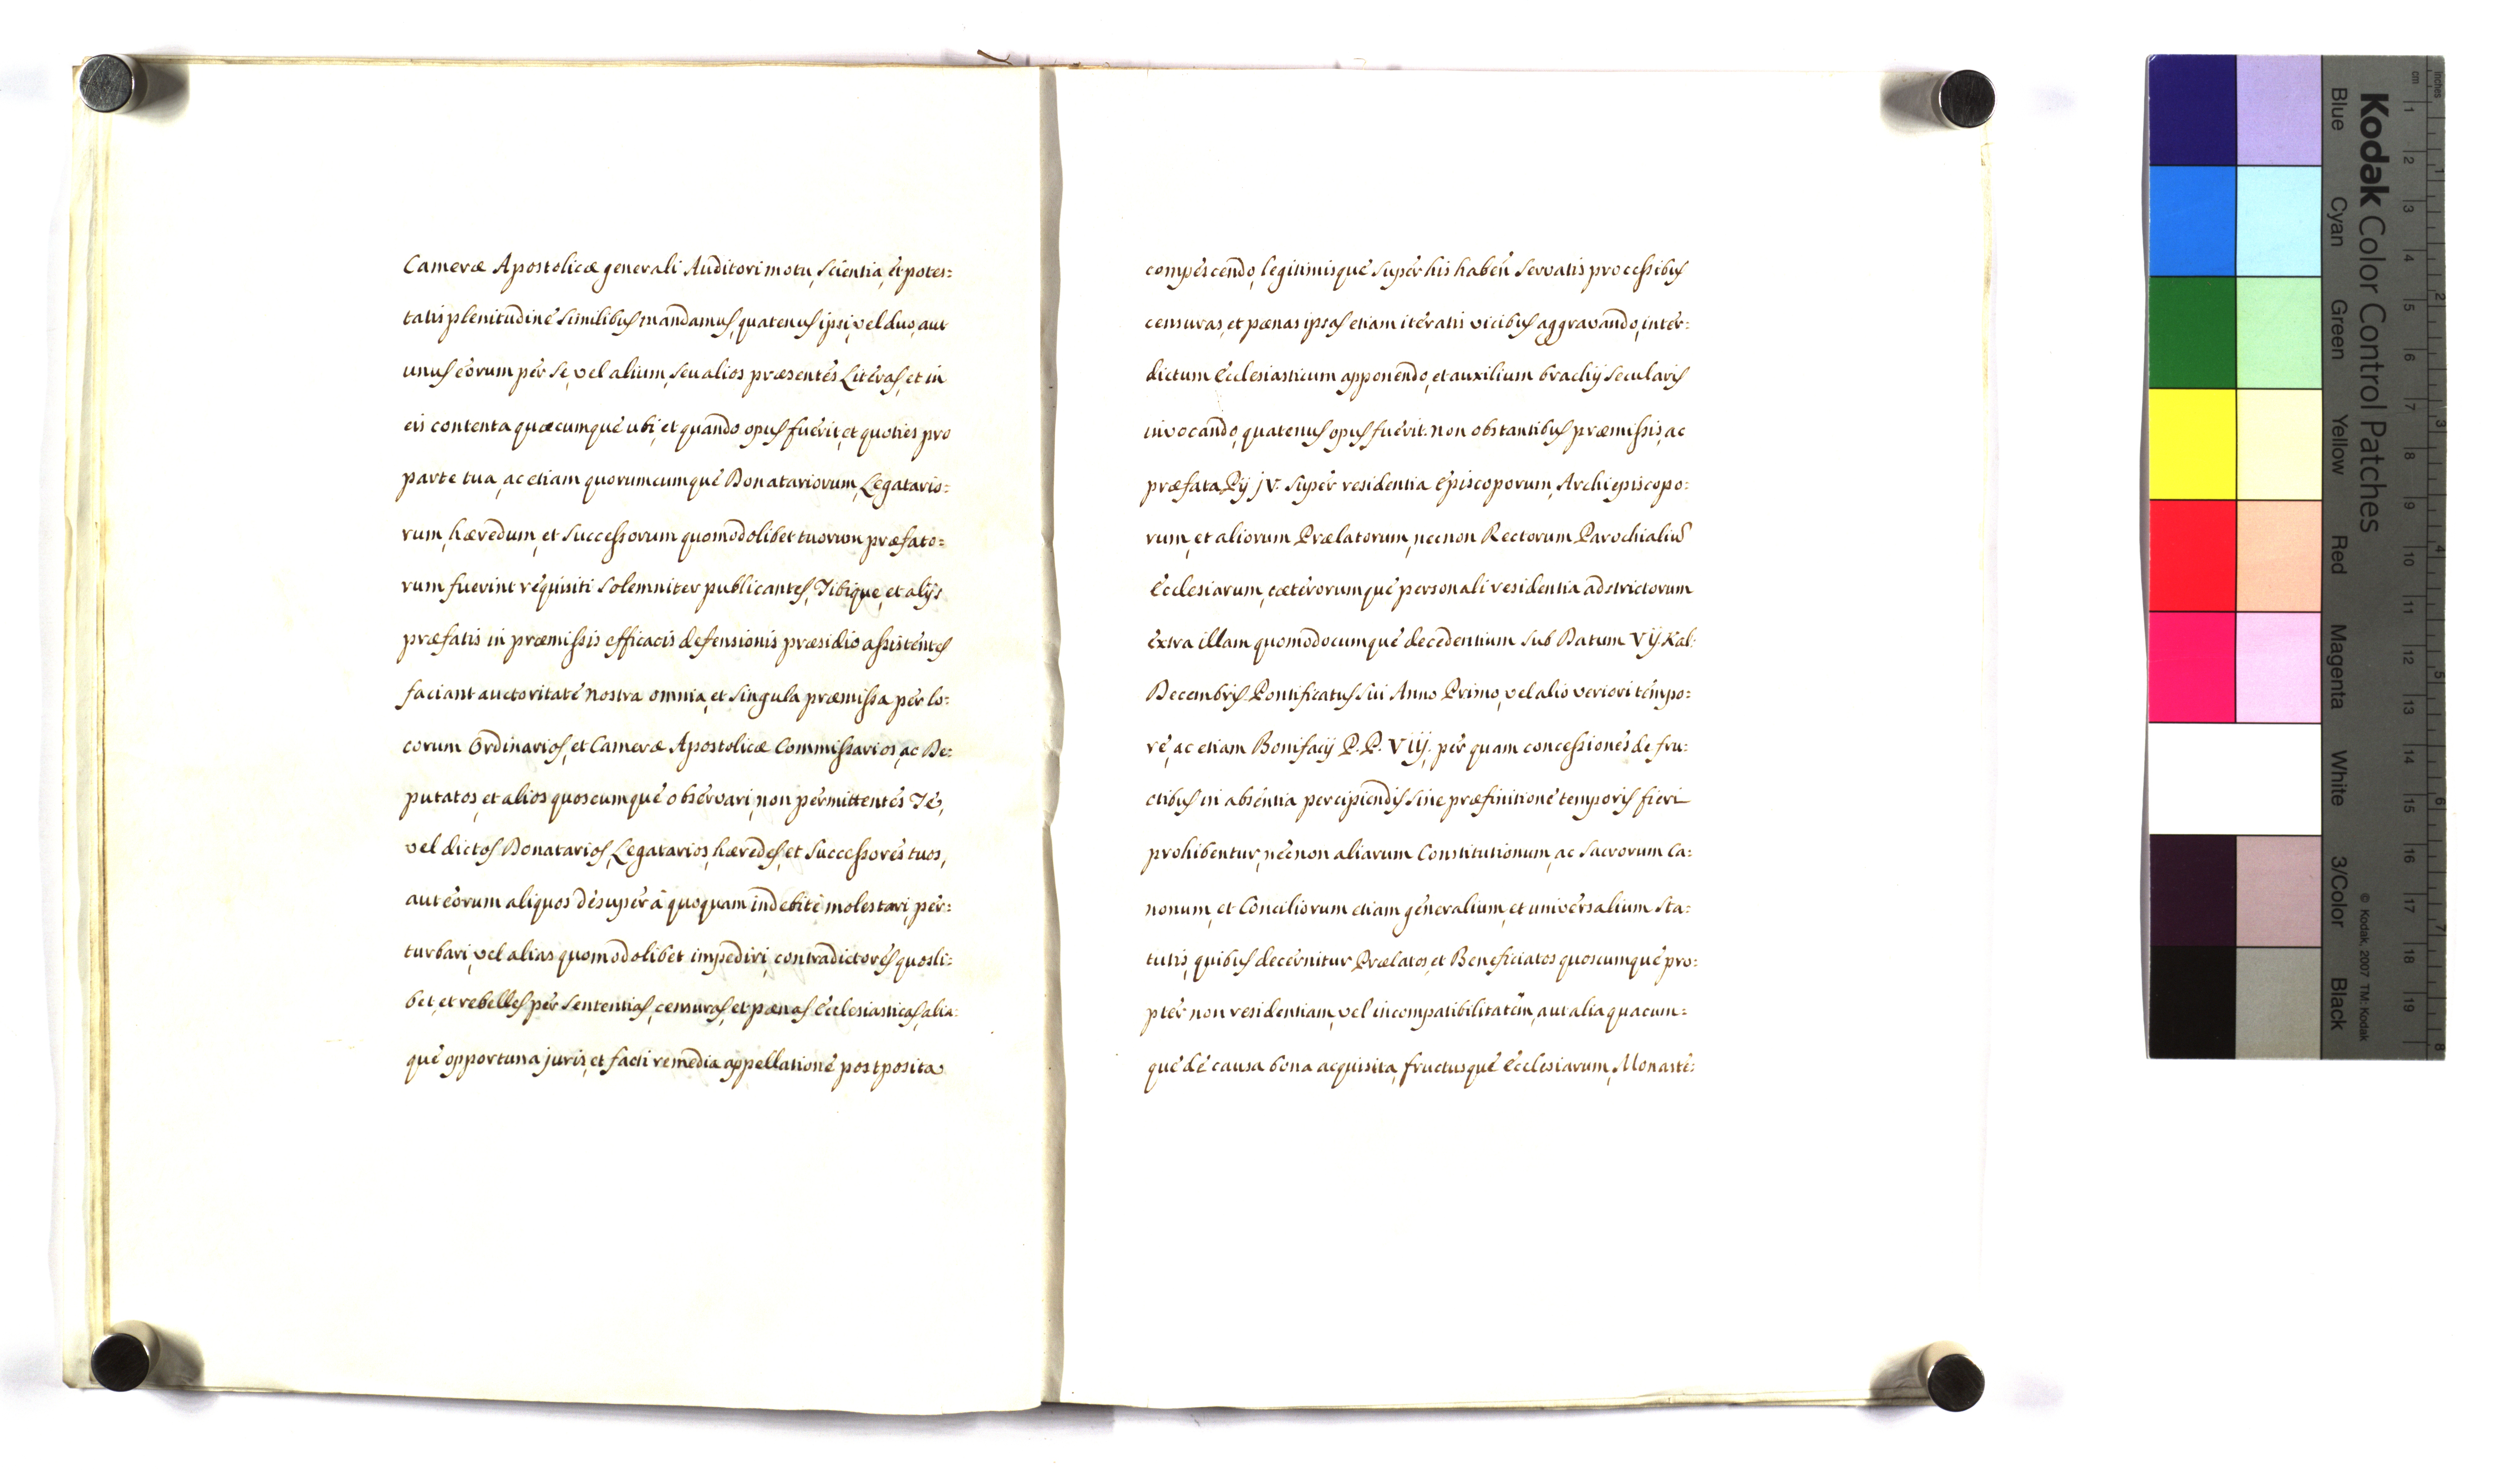 Cameræ Apostolicæ generali Auditori motu, scientia, et potes=
tatis plenitudine similibus mandamus, quatenus ipsi, vel duo, aut
unus eorum per se, vel alium, seu alios præsentes Literas, et in
eis contenta quæcumque ubi, et quando opus fuerit, et quoties pro
parte tua, ac etiam quorumcumque Donatariorum, Legatario=
rum, hæredum, et Successorum quomodolibet tuorum præfato=
rum fuerint requisiti solemniter publicantes, Tibique, et alijs
præfatis in præmissis efficacis defensionis præsidio assistentes
faciant auctoritate nostra omnia, et singula præmissa per lo=
corum Ordinarios, et Cameræ Apostolicæ Commissarios, ac De=
putatos, et alios quoscumque observari, non permittentes Te,
vel dictos Donatarios, Legatarios, hæredes, et Successores tuos,
aut eorum aliquos desuper à quoquam indebite molestari, per=
turbari, vel alias quomodolibet impediri, contradictores quosli=
bet, et rebelles per sententias, censuras, et pænas Ecclesiasticas, alia=
que opportuna juris, et facti remedia appellatione postposita
compescendo, legitimisque super his haben servatis processibus
censuras, et pænas ipsas etiam iteratis vicibus aggravando, inter=
dictum Ecclesiasticum apponendo, et auxilium brachij secularis
invocando, quatenus opus fuerit. non obstantibus præmissis, ac
præfata Pij jv. super residentia Episcoporum, Archiepiscopo=
rum, et aliorum Prælatorum, necnon Rectorum Parochialiu
Ecclesiarum, cæterorumque personali residentia adstrictorum
extra illam quomodocumque decedentium sub Datum Vij. Kal.
Decembris Pontificatus sui Anno Primo, vel alio veriori tempo=
re, ac etiam Bonifacij P. P. Viij. per quam concessiones de fru=
ctibus in absentia percipiendis sine præfinitione temporis fieri
prohibentur, necnon aliarum Constitutionum, ac Sacrorum Ca=
nonum, et Conciliorum etiam generalium, et universalium sta=
tutis, quibus decernitur Prælatos, et Beneficiatos quoscumque pro=
pter non residentiam, vel incompatibilitatem, aut alia quacum=
que de causa bona acquisita, fructusque Ecclesiarum, Monaste=
Kodak Color Control Patches
Blue Cyan Green Yellow Red Magenta White 3/Color Black
© Kodak, 2007 TM: Kodak
inches 1 2 3 4 5 6 7 8
cm 1 2 3 4 5 6 7 8 9 10 11 12 13 14 15 16 17 18 19